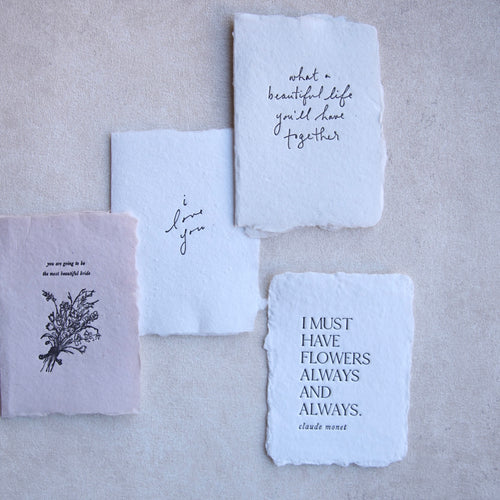 what a
beautiful life
you'll have
together
i
love
you
you are going to be
the most beautiful bride
I MUST
HAVE
FLOWERS
ALWAYS
AND
ALWAYS.
claude monet